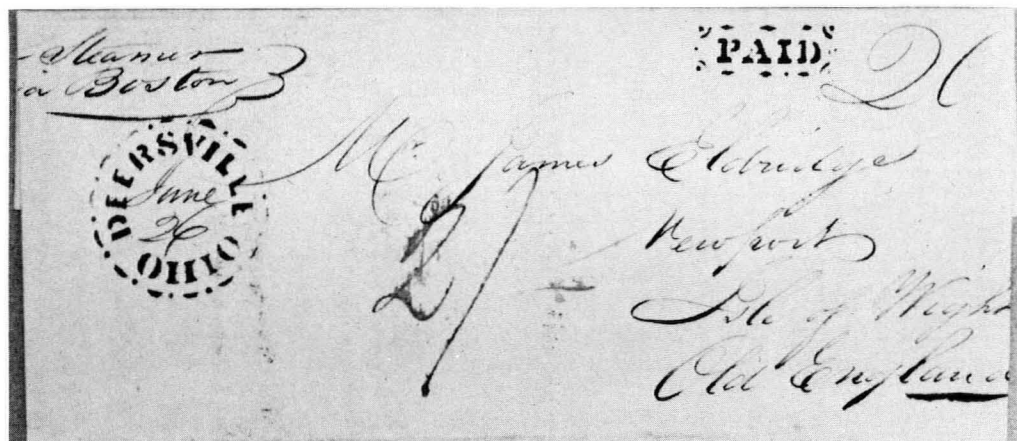 Steamer
a Boston
PAID
DEERSVILLE
June
26
OHIO
Mr James Eldridge
Newport
Isle of Wigh
Old England